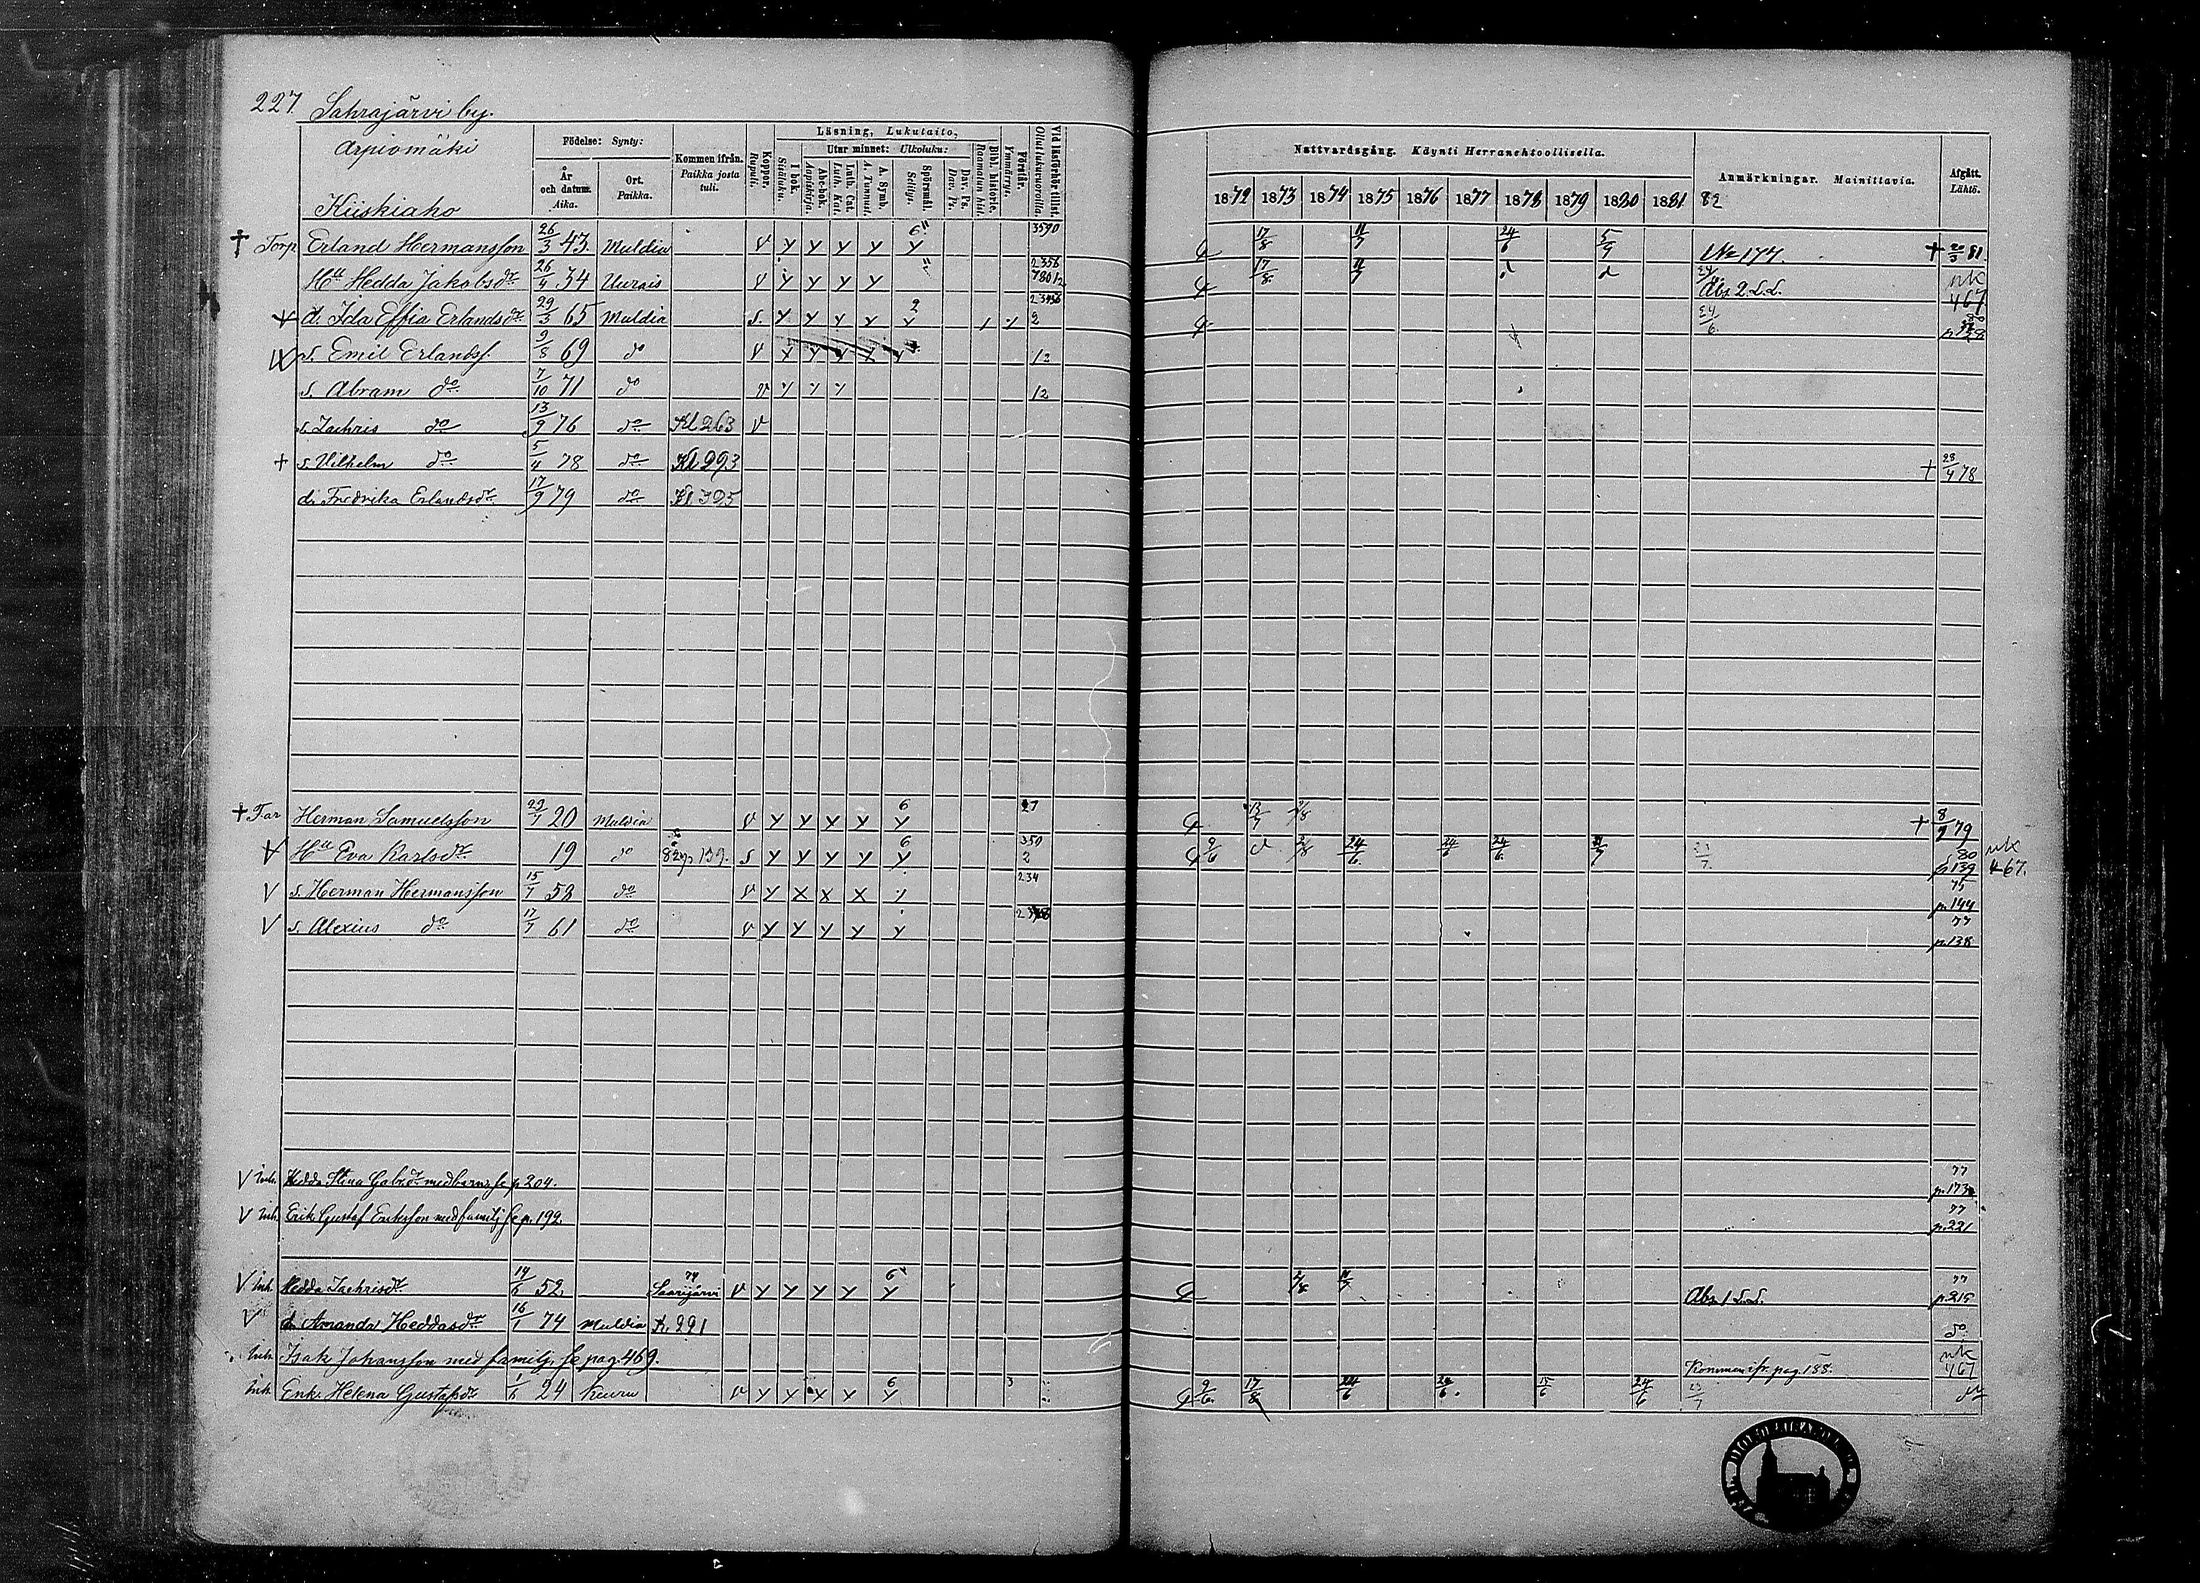 227. Sahrajärvi by.
Arpiomäki
Kiiskiaho
Födelse: Synty:
År och datum. Aika.
Ort. Paikka.
Kommen ifrån. Paikka josta tuli.
Koppor. Rupuli.
Läsning, Lukutaito,
I bok. Sisäluku.
Utur minnet: Ulkoluku:
Abc-bok. Aapiskirja.
Luth. Cat. Luth. Kat.
A. Symb. A. Tunnust.
Spörsmål. Selitys.
Dav. Ps. Dav. Ps.
Bibl. historie. Raamatun hist.
Förstår. Ymmärrys.
Vid läsförhör tillst. Ollut lukuvuoroilla.
Nattvardsgång. Käynti Herranehtoollisella.
1872 1873 1874 1875 1876 1877 1878 1879 1880 1881
Anmärkningar. Mainittavia.
82
Afgått. Lähtö.
† Torp. Erland Hermansson 26/3 43. Muldia v y y y y y 6 3590 17/8 11/7 24/6 5/9 No 177. † 20/3 81.
Hu Hedda Jakobsdr 26/4 34 Uurais v y y y y 17/8 11/7 Abs. 2. L.L. nk 467
d. Ida Effia Erlandsdr 29/3 65 Muldia s. y y y y y 2 24/6
s. Emil Erlandss. 9/8 69 do v y y y y y 12
s. Abram do 7/10 71 do v y y y 12
s. Zachris do 13/9 76 do Kl 263 v
+ s. Vilhelm do 5/4 78 do Kl 293 + 28/4 78
d. Fredrika Erlandsdr 17/9 79 do Kl 395
† F.ar Herman Samuelsson 22/1 20 Muldia v y y y y y 6 27 † 8/9 79
V Hu Eva Karlsdr 19 do s y y y y y 6 350 2 9/6 24/6 24/6 24/6 80 p.139 nk 467.
V s. Herman Hermansson 15/7 58 do v y x x x y 234 75 p.144
V s. Alexius do 17/7 61 do v y y y y y 77 p.138
V Inh. Hedda Stina Gabrdr med barn se p 204. 77
V Inh. Erik Gustaf Eriksson med familj se p. 192. 77 p.221
V Inh. Hedda Zachrisdr 14/6 52. 74 Saarijärvi v y y y y y 6 Abs. 1 L.L. 77 p.215
V d. Amanda Heddasdr 16/1 74 Muldia K. 291 do
Inh. Isak Johansson med familj, se pag. 469. Kommen ifr. pag. 188. nk 467
Inh. Enk. Helena Gustafsdr 1/6 24 Keuru v y y y y 6 3 9/6 17/8 24/6 24/6 15/6 24/6 23/7